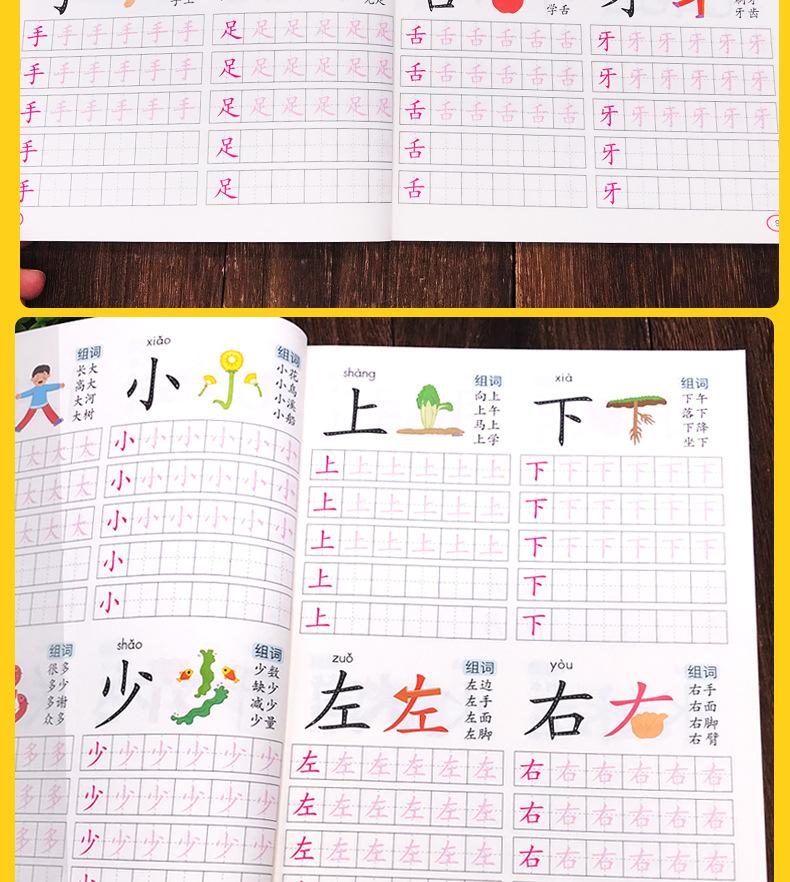 手 学舌 刷牙
牙齿
手 手 手 手 手 手
足 足 足 足 足 足
舌 舌 舌 舌 舌 舌
牙 牙 牙 牙 牙 牙
手 手 手 手 手 手
足 足 足 足 足 足
舌 舌 舌 舌 舌 舌
牙 牙 牙 牙 牙 牙
手 手 手 手 手 手
足 足 足 足 足 足
舌 舌 舌 舌 舌 舌
牙 牙 牙 牙 牙 牙
手
足
舌
牙
手
足
舌
牙
组词
长大
高大
大河
大树
xiǎo
小
组词
小花
小鸟
小溪
小船
大 大 大
小 小 小 小 小 小
大 大 大
小 小 小 小 小 小
大 大 大
小 小 小 小 小 小
小
小
组词
很多
多少
多谢
众多
shǎo
少
组词
少数
缺少
减少
少量
多 多
少 少 少 少 少 少
多 多
少 少 少 少 少 少
多 多
少 少 少 少 少 少
shàng
上
组词
向上
上午
马上
上学
xià
下
组词
下午
落下
下降
坐下
上 上 上 上 上 上
下 下 下 下 下 下
上 上 上 上 上 上
下 下 下 下 下 下
上 上 上 上 上 上
下 下 下 下 下 下
上
下
上
下
zuǒ
左
左
组词
左边
左手
左面
左脚
yòu
右
组词
右手
右面
右脚
右臂
左 左 左 左 左 左
右 右 右 右 右 右
左 左 左 左 左 左
右 右 右 右 右 右
左 左 左 左 左 左
右 右 右 右 右 右